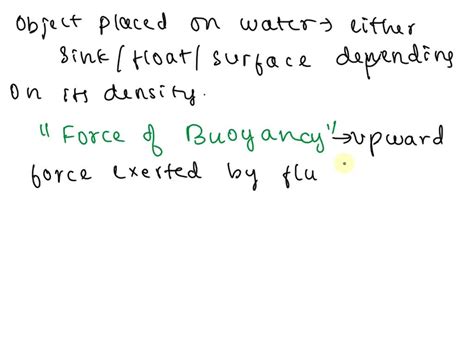 Object placed on water → either
sink/float/surface depending
on its density.
"Force of Buoyancy" → upward
force exerted by flu